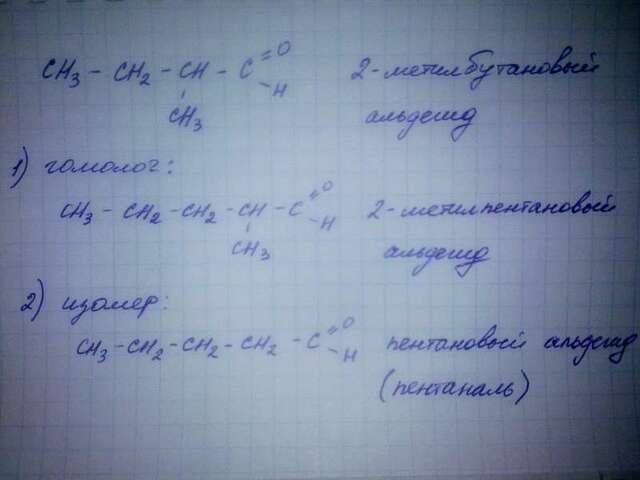 CH3 - CH2 - CH - C =O 2-метилбутановый
- H
CH3 альдегид
1) гомолог:
CH3 - CH2 - CH2 - CH - C =O 2-метилпентановый
- H
CH3 альдегид
2) изомер:
CH3 - CH2 - CH2 - CH2 - C =O пентановый альдегид
- H
(пентаналь)